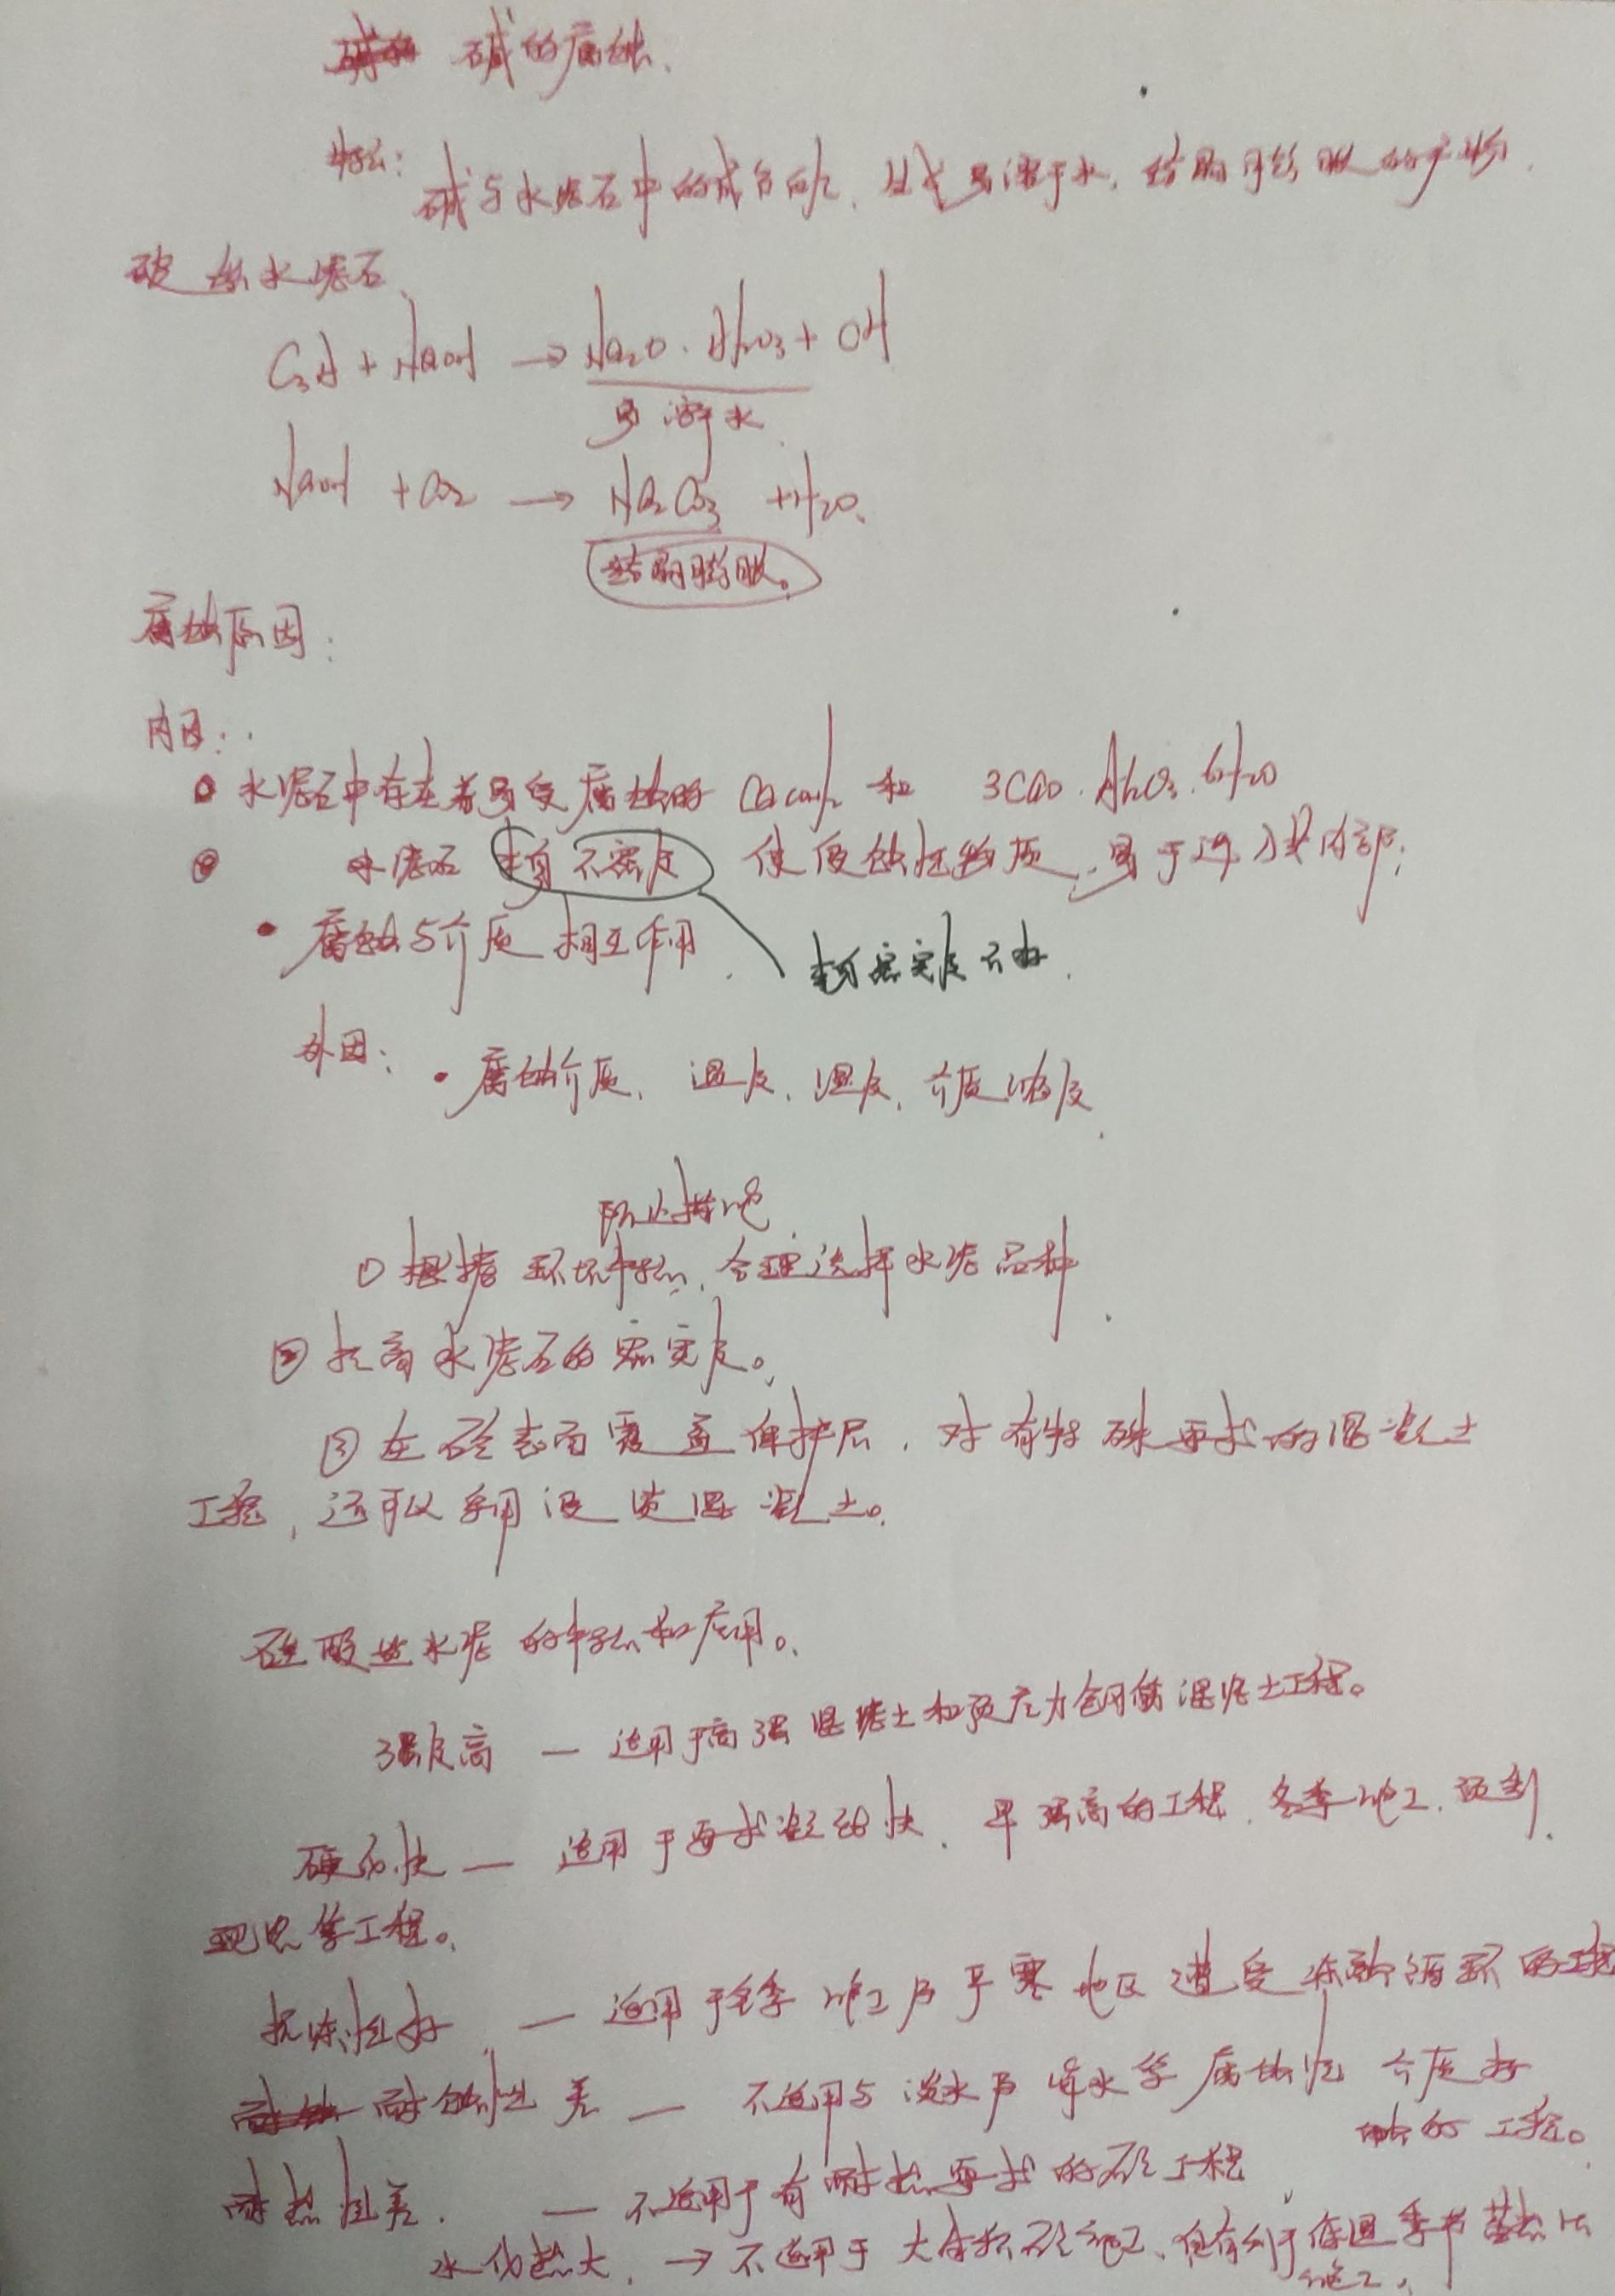 碱的腐蚀.
特点: 碱与水泥石中的成分向, 生成易溶于水, 结晶膨胀的产物.
破坏水泥石.
C₃A + NaOH → Na₂O·Al₂O₃ + OH
易溶于水.
NaOH + CO₂ → Na₂CO₃ + H₂O.
结晶膨胀。
腐蚀原因:
内因:
水泥石中存在着易受腐蚀的 Ca(OH)₂ 和 3CaO·Al₂O₃·6H₂O
水泥石 本身 不密度 使侵蚀性物质, 易于进入其内部;
• 腐蚀与介质 相互作用.
本身密实度不好.
外因: • 腐蚀介质、温度、湿度、介质浓度.
防止措施
① 根据环境特点, 合理选择水泥品种.
② 提高水泥石的密实度。
③ 在砼表面覆盖保护层, 对有特殊要求的混凝土
工程, 还可以采用浸渍混凝土。
硅酸盐水泥的特点和应用。
强度高 — 适用于高强混凝土和预应力钢筋混凝土工程。
硬化快 — 适用于要求凝结快、早强高的工程、冬季施工、预制、
现浇等工程。
抗冻性好 — 适用于冬季施工及严寒地区遭受冻融循环的工程
耐蚀性差 — 不适用与淡水及海水等腐蚀性介质
的工程。
耐热性差. — 不适用于有耐热要求的砼工程
水化热大. → 不适用于大体积砼施工、但有利于低温季节蓄热法
施工.